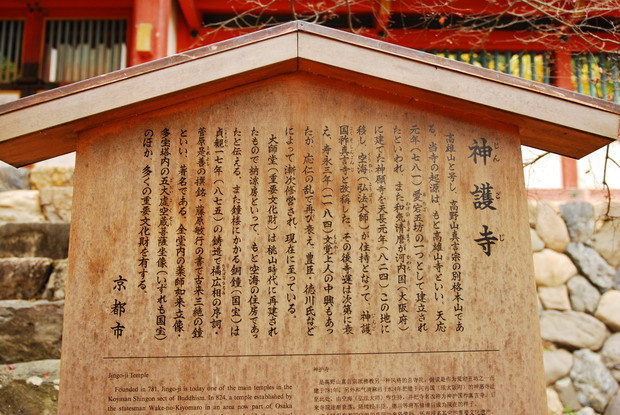 神護寺
じんごじ
高雄山と号し、高野山真言宗の別格本山であ
る。当寺の起源は、もと高雄山寺といい、天応
元年(七八一)愛宕五坊の一つとして建立され
たといわれ、また和気清麿が河内国(大阪府)
に建てた神願寺を天長元年(八二四)この地に
移し、空海(弘法大師)が住持となって、神護
国祚真言寺と改称した。その後寺運は次第に衰
え、寿永三年(一一八四)文覚上人の中興もあっ
たが、応仁の乱で再び衰え、豊臣・徳川氏など
によって漸次修営され、現在に至っている。
大師堂(重要文化財)は桃山時代に再建され
たもので納涼房といって、もと空海の住房であっ
たと伝える。また鐘楼にかかる銅鐘(国宝)は
貞観一七年(八七五)の鋳造で橘広相の序詞・
菅原是善の撰銘・藤原敏行の書で古来三絶の鐘
といい、著名である。金堂内の薬師如来立像・
多宝塔内の五大虚空蔵菩薩坐像(いずれも国宝)
のほか、多くの重要文化財を有する。
京都市
Jingo-ji Temple
Founded in 781, Jingo-ji is today one of the main temples in the
Koyasan Shingon sect of Buddhism. In 824, a temple established by
the statesman Wake-no-Kiyomaro in an area now part of Osaka
神护寺